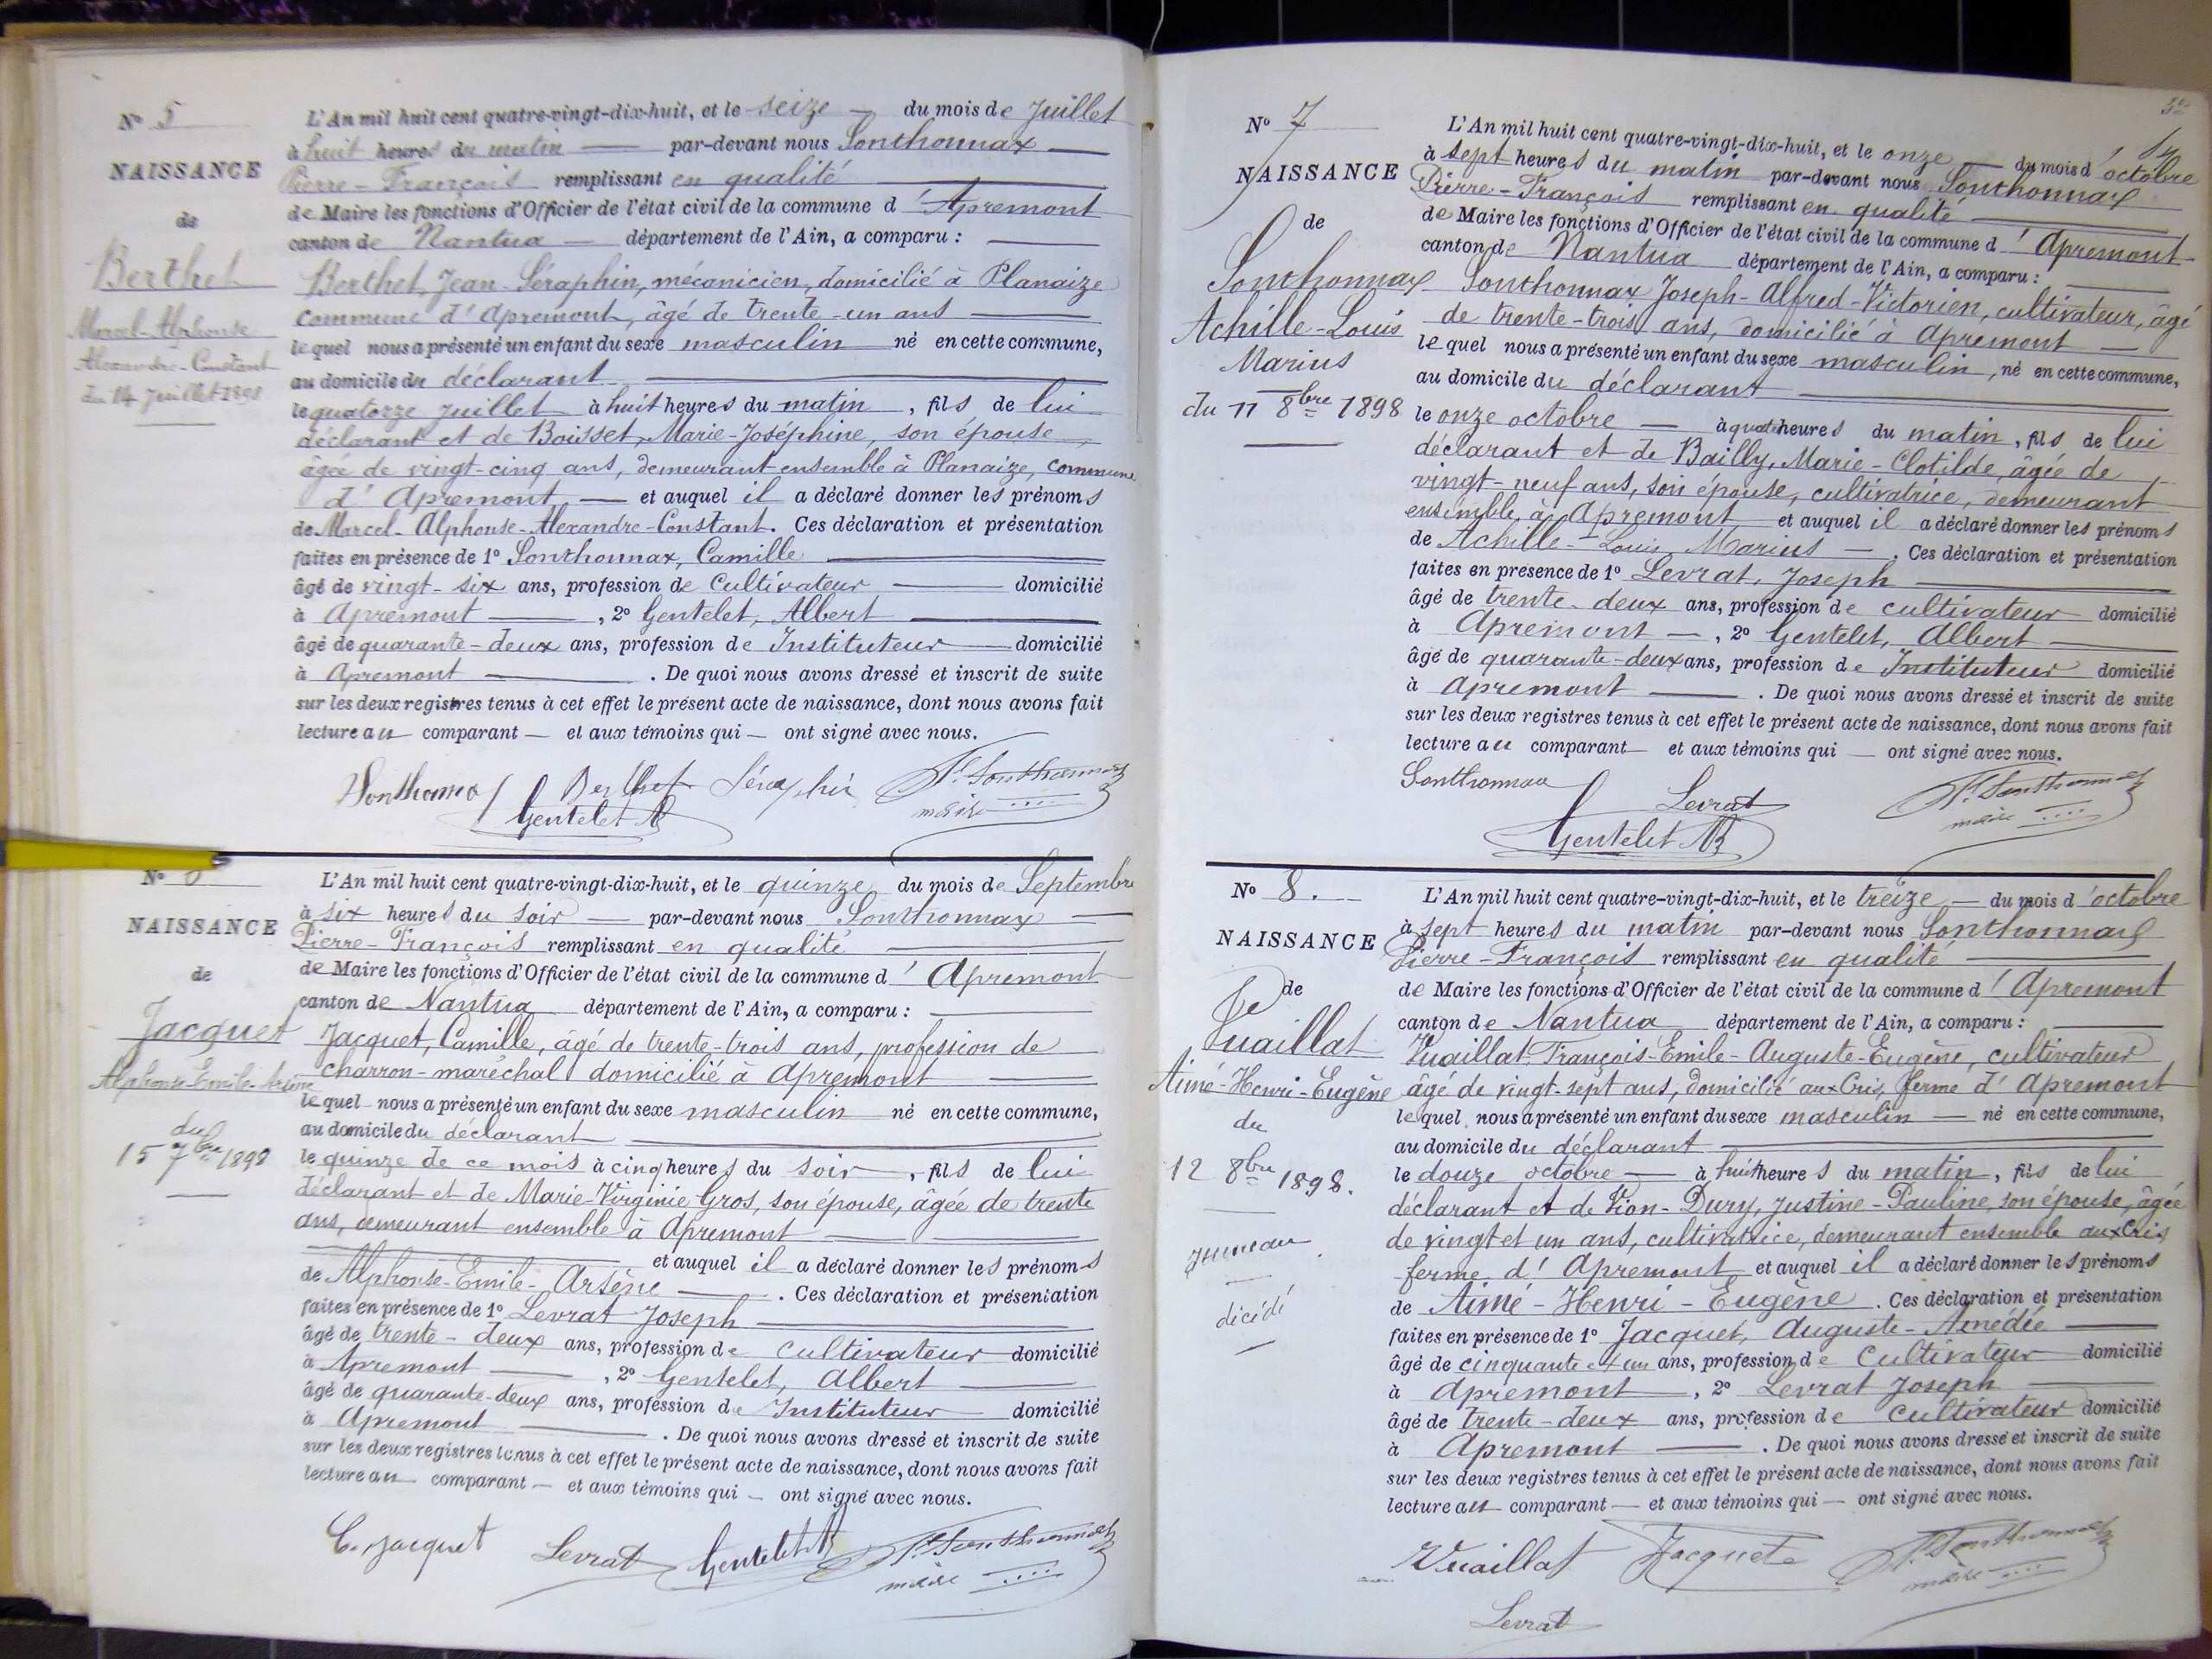 N° 5
NAISSANCE
de
Berthet
Marcel-Alphonse
Alexandre-Constant
du 14 Juillet 1898
L'An mil huit cent quatre-vingt-dix-huit, et le seize — du mois de Juillet
à huit heures du matin — par-devant nous Sonthonnax —
Pierre-François remplissant en qualité
de Maire les fonctions d'Officier de l'état civil de la commune d'Apremont
canton de Nantua — département de l'Ain, a comparu :
Berthet, Jean-Séraphin, mécanicien, domicilié à Planaize
commune d'Apremont, âgé de trente-un ans —
lequel nous a présenté un enfant du sexe masculin né en cette commune,
au domicile du déclarant
le quatorze juillet à huit heures du matin, fils de lui
déclarant et de Boisset, Marie-Joséphine, son épouse,
âgée de vingt-cinq ans, demeurant ensemble à Planaize, commune
d'Apremont, — et auquel il a déclaré donner les prénoms
de Marcel-Alphonse-Alexandre-Constant. Ces déclaration et présentation
faites en présence de 1° Sonthonnax, Camille
âgé de vingt-six ans, profession de Cultivateur — domicilié
à Apremont —, 2° Gentelet, Albert
âgé de quarante-deux ans, profession de Instituteur — domicilié
à Apremont — . De quoi nous avons dressé et inscrit de suite
sur les deux registres tenus à cet effet le présent acte de naissance, dont nous avons fait
lecture au comparant — et aux témoins qui — ont signé avec nous.
Sonthonnax Berthet Séraphin P. Sonthonnax
Gentelet A maire
N° 6
NAISSANCE
de
Jacquet
Alphonse-Emile-Arsène
du
15 7bre 1898
L'An mil huit cent quatre-vingt-dix-huit, et le quinze du mois de Septembre
à six heures du soir — par-devant nous Sonthonnax —
Pierre-François remplissant en qualité
de Maire les fonctions d'Officier de l'état civil de la commune d'Apremont
canton de Nantua département de l'Ain, a comparu :
Jacquet, Camille, âgé de trente-trois ans, profession de
charron-maréchal domicilié à Apremont —
lequel nous a présenté un enfant du sexe masculin né en cette commune,
au domicile du déclarant
le quinze de ce mois à cinq heures du soir, fils de lui
déclarant et de Marie-Virginie Gros, son épouse, âgée de trente
ans, demeurant ensemble à Apremont —
et auquel il a déclaré donner les prénoms
de Alphonse-Emile-Arsène — . Ces déclaration et présentation
faites en présence de 1° Levrat Joseph
âgé de trente-deux ans, profession de Cultivateur domicilié
à Apremont —, 2° Gentelet, Albert
âgé de quarante-deux ans, profession de Instituteur domicilié
à Apremont — . De quoi nous avons dressé et inscrit de suite
sur les deux registres tenus à cet effet le présent acte de naissance, dont nous avons fait
lecture au comparant — et aux témoins qui — ont signé avec nous.
C. Jacquet Levrat Gentelet A P. Sonthonnax
maire
N° 7
NAISSANCE
de
Sonthonnax
Achille-Louis
Marius
du 11 8bre 1898
L'An mil huit cent quatre-vingt-dix-huit, et le onze — du mois d'octobre
à sept heures du matin par-devant nous Sonthonnax
Pierre-François remplissant en qualité
de Maire les fonctions d'Officier de l'état civil de la commune d'Apremont
canton de Nantua département de l'Ain, a comparu :
Sonthonnax Joseph-Alfred-Victorien, cultivateur, âgé
de trente-trois ans, domicilié à Apremont —
lequel nous a présenté un enfant du sexe masculin, né en cette commune,
au domicile du déclarant
le onze octobre — à quatre heures du matin, fils de lui
déclarant et de Bailly, Marie-Clotilde, âgée de
vingt-neuf ans, son épouse, cultivatrice, demeurant
ensemble à Apremont et auquel il a déclaré donner les prénoms
de Achille-Louis Marius — . Ces déclaration et présentation
faites en présence de 1° Levrat, Joseph
âgé de trente-deux ans, profession de cultivateur domicilié
à Apremont —, 2° Gentelet, Albert
âgé de quarante-deux ans, profession de Instituteur domicilié
à Apremont — . De quoi nous avons dressé et inscrit de suite
sur les deux registres tenus à cet effet le présent acte de naissance, dont nous avons fait
lecture au comparant — et aux témoins qui — ont signé avec nous.
Sonthonnax Levrat P. Sonthonnax
Gentelet A maire
N° 8.
NAISSANCE
de
Vuaillat
Aimé-Henri-Eugène
du
12 8bre 1898.
jumeau
décédé
L'An mil huit cent quatre-vingt-dix-huit, et le treize — du mois d'octobre
à sept heures du matin par-devant nous Sonthonnax
Pierre-François remplissant en qualité
de Maire les fonctions d'Officier de l'état civil de la commune d'Apremont
canton de Nantua département de l'Ain, a comparu :
Vuaillat François-Emile-Auguste-Eugène, cultivateur
âgé de vingt-sept ans, domicilié aux Cris, ferme d'Apremont
lequel nous a présenté un enfant du sexe masculin — né en cette commune,
au domicile du déclarant
le douze octobre — à huit heures du matin, fils de lui
déclarant et de Vion-Dury, Justine-Pauline, son épouse, âgée
de vingt et un ans, cultivatrice, demeurant ensemble aux Cris
ferme d'Apremont et auquel il a déclaré donner les prénoms
de Aimé-Henri-Eugène. Ces déclaration et présentation
faites en présence de 1° Jacquet, Auguste-Amédée —
âgé de cinquante et un ans, profession de Cultivateur domicilié
à Apremont —, 2° Levrat Joseph
âgé de trente-deux ans, profession de Cultivateur domicilié
à Apremont — . De quoi nous avons dressé et inscrit de suite
sur les deux registres tenus à cet effet le présent acte de naissance, dont nous avons fait
lecture au comparant — et aux témoins qui — ont signé avec nous.
Vuaillat Jacquet P. Sonthonnax
maire
Levrat